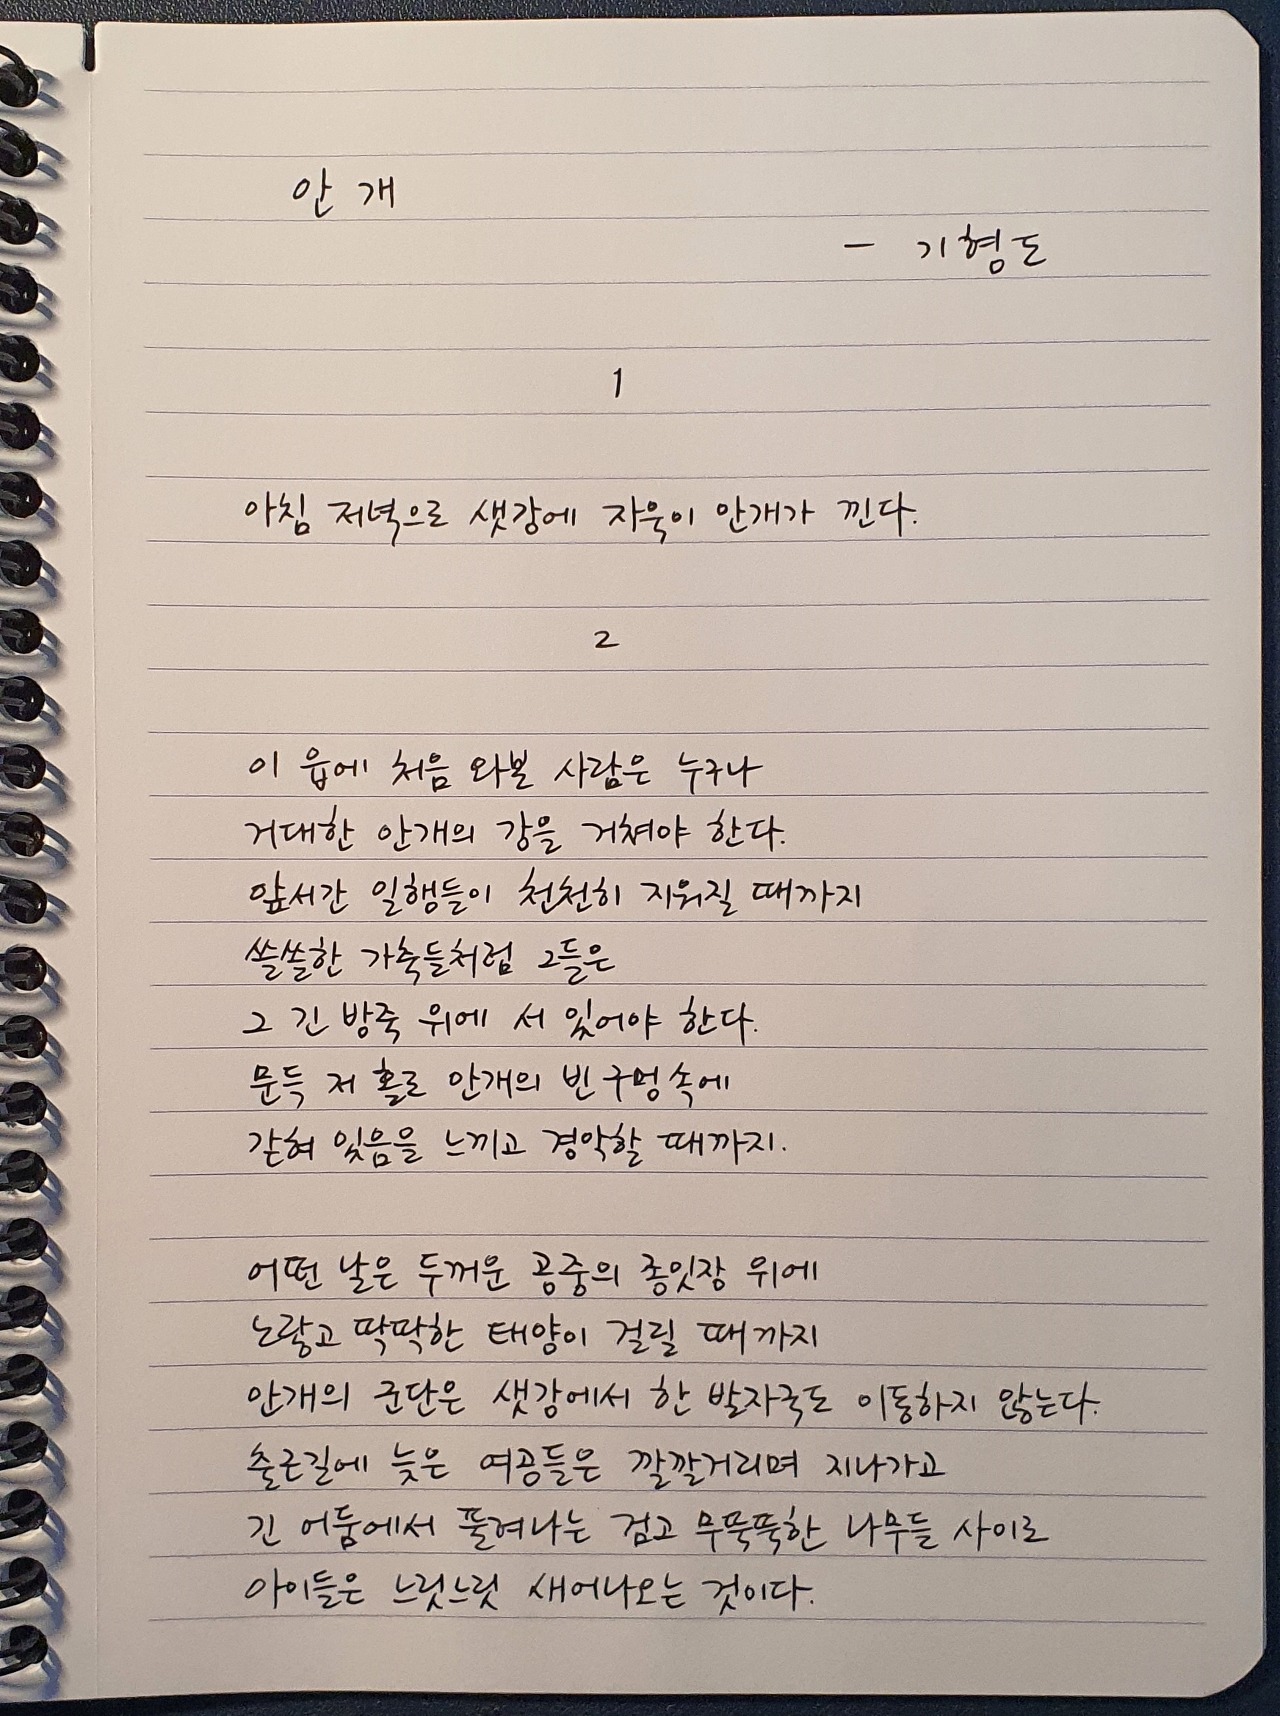 안개
- 기형도
1
아침 저녁으로 샛강에 자욱이 안개가 낀다.
2
이 읍에 처음 와본 사람은 누구나
거대한 안개의 강을 거쳐야 한다.
앞서간 일행들이 천천히 지워질 때까지
쓸쓸한 가축들처럼 그들은
그 긴 방죽 위에 서 있어야 한다.
문득 저 홀로 안개의 빈 구멍 속에
갇혀 있음을 느끼고 경악할 때까지.
어떤 날은 두꺼운 공중의 종잇장 위에
노랗고 딱딱한 태양이 걸릴 때까지
안개의 군단은 샛강에서 한 발자국도 이동하지 않는다.
출근길에 늦은 여공들은 깔깔거리며 지나가고
긴 어둠에서 풀려나는 검고 무뚝뚝한 나무들 사이로
아이들은 느릿느릿 새어나오는 것이다.